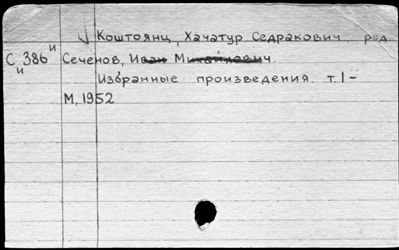 Коштоянц, Хачатур Седракович, ред.
С 386 и
и Сеченов, Иван Михайлович.
Избранные произведения. т. I –
М, 1952